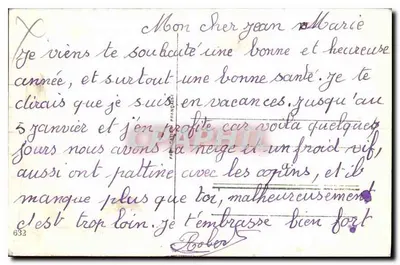 Mon cher Jean Marie
Je viens te souhaité une bonne et heureuse
année, et surtout une bonne santé. Je te
dirais que je suis en vacances. jusqu'au
5 janvier et j'en profite car voila quelques
jours nous avons la neige et un froid vif,
aussi ont patine avec les copains, et il
manque plus que toi, malheureusement
c'est trop loin. Je t'embrasse bien fort
Robert
633